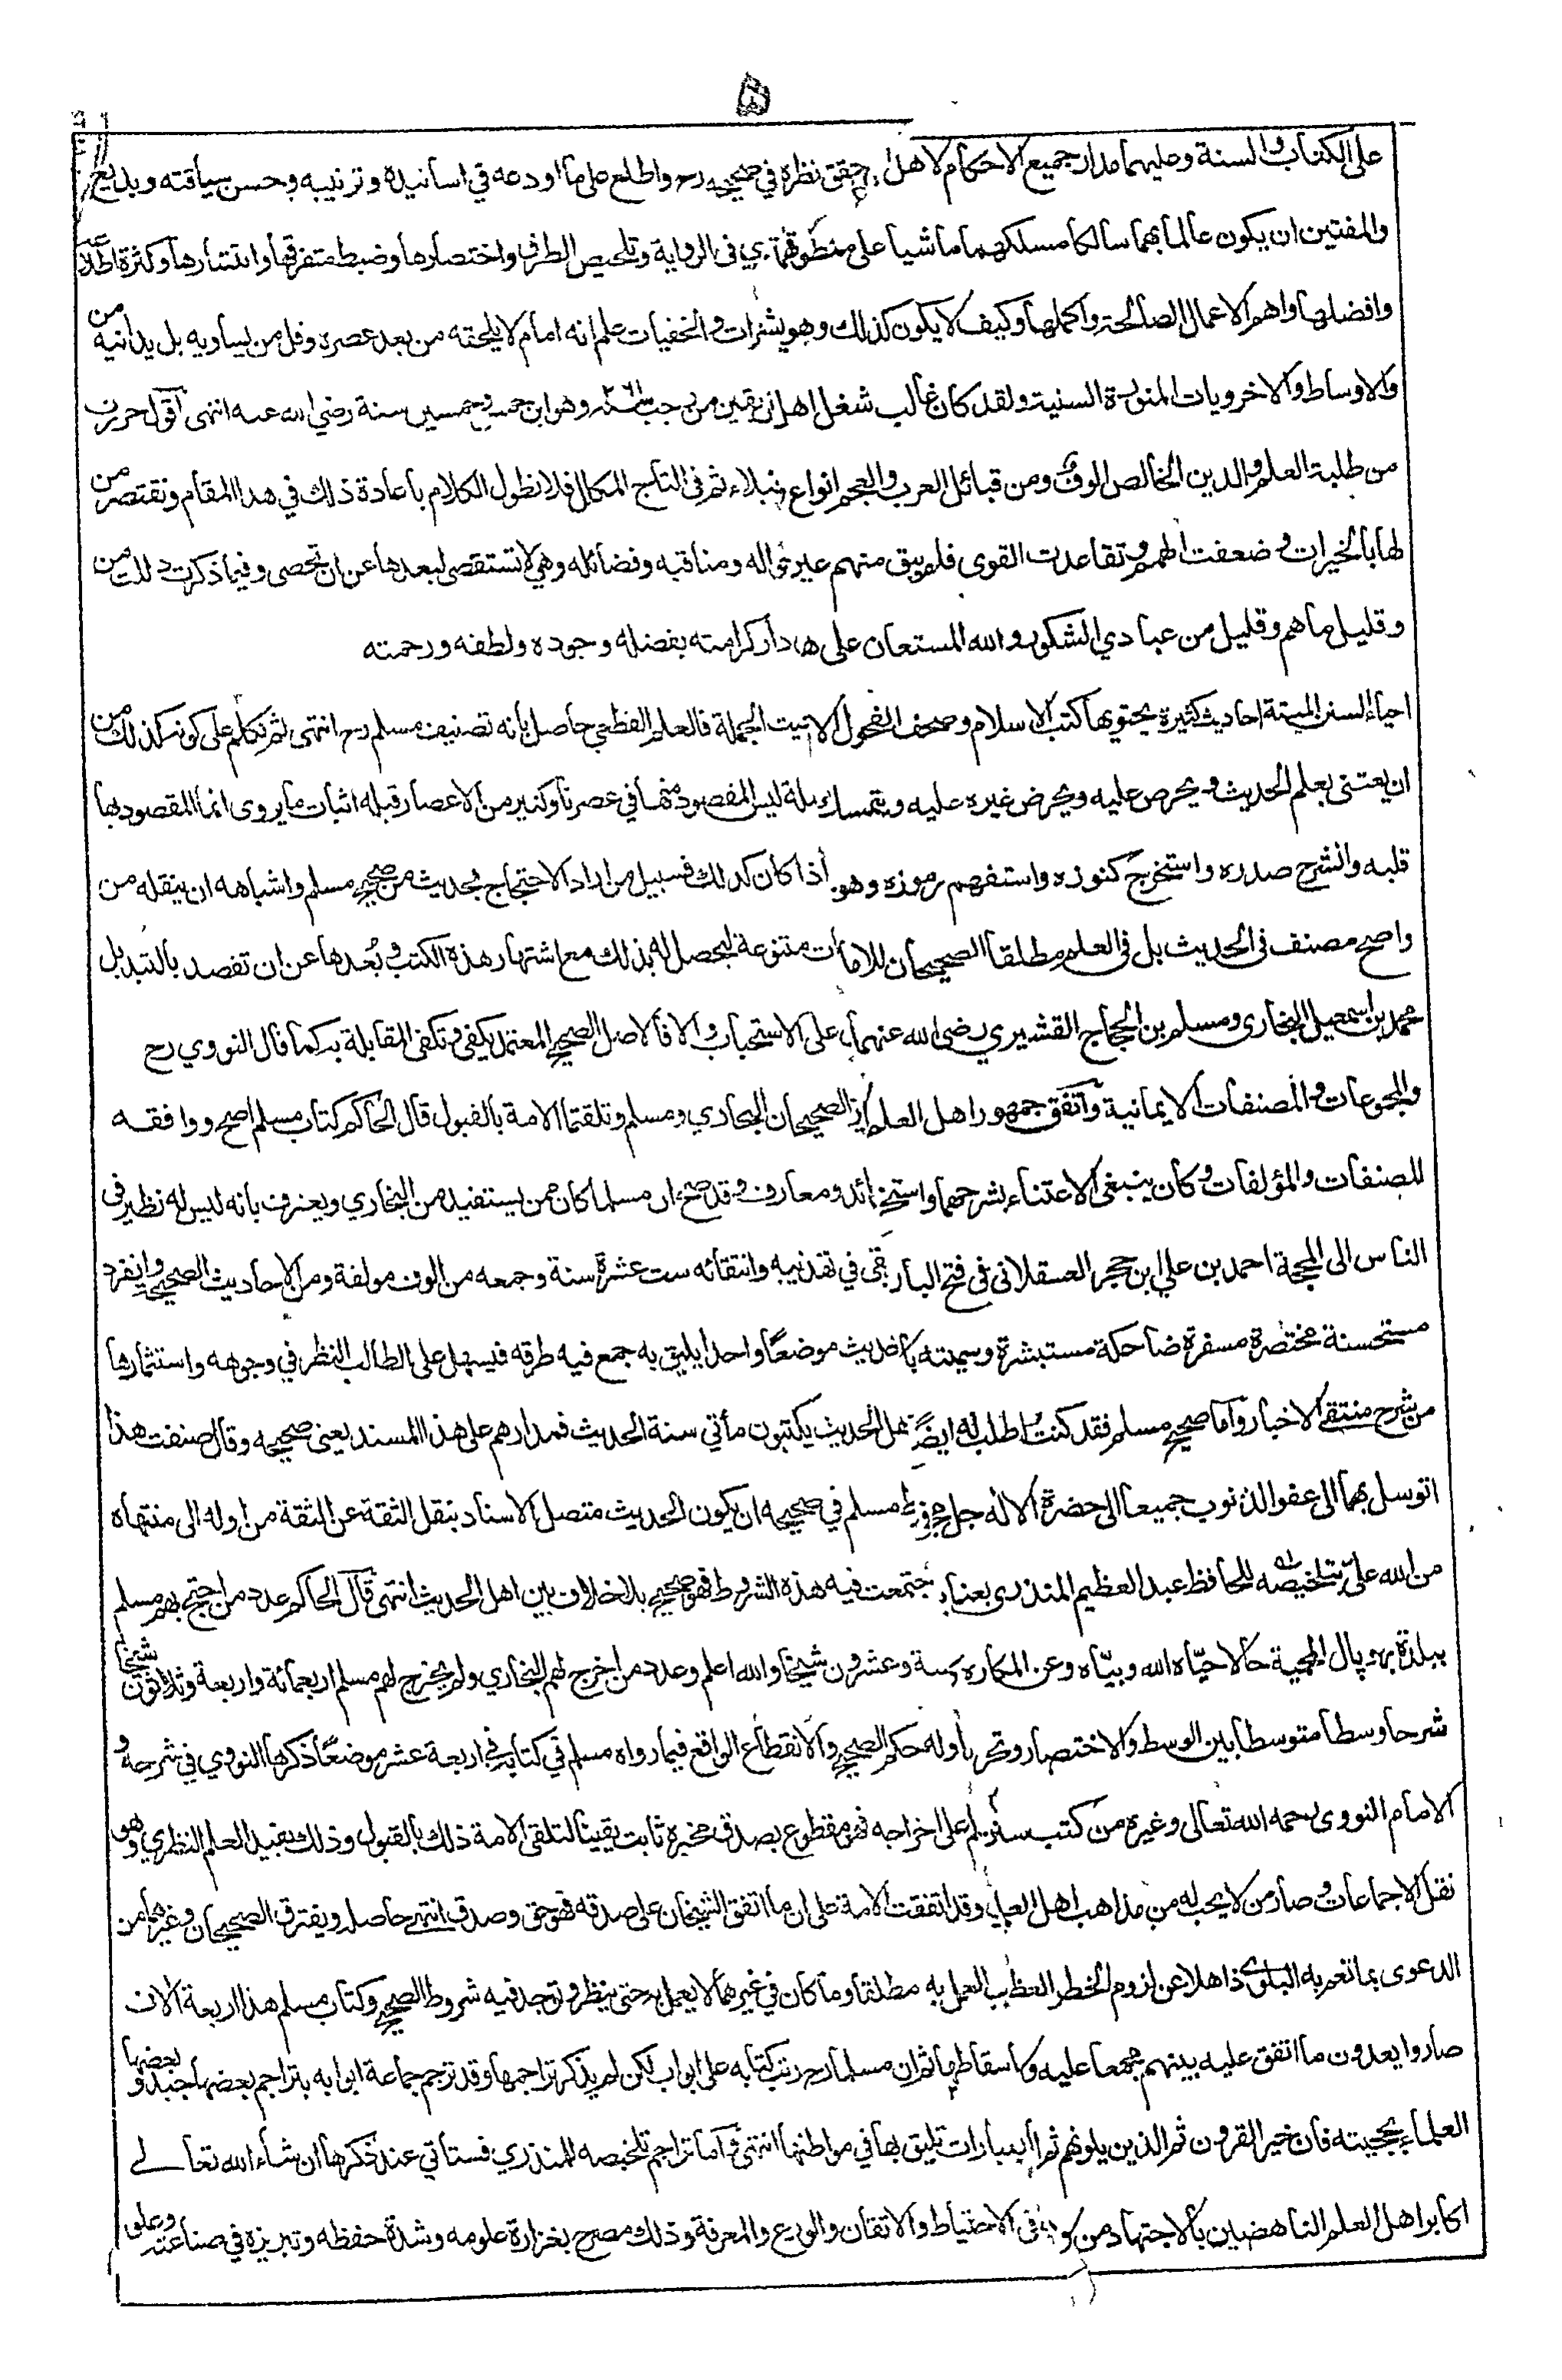 ۵
على الكتاب والسنة وعليهما مدار جميع الاحكام لاهل حقق نظره في صحيحه رح واطلع على ما اودعه في اسانيده وترتيبه وحسن سياقته وبديع
والمفتين ان يكون عالما بهما سالكا مسلكهما ماشيا على منطوقهما ي في الرواية وتلخيص الطرق واختصارها وضبط متفرقها وانتشارها وكثرة اطلا
وافضلها واهم الاعمال الصالحة واكملها وكيف لا يكون كذلك وهو يشرات والخفيات علم انه امام لا يلحقه من بعد عصره وقل من يساويه بل يدانيه من
والاوساط والاخرويات المنورة السنية ولقد كان غالب شغل اهل يقين من رجب سنة ٢٦١ وهو ابن خمس وخمسين سنة رضي الله عنه انتهى اقول حررت
من طلبة العلم والدين الخالص الوف ومن قبائل العرب والعجم انواع نبلاء ثم في التاج المكلل فلا نطول الكلام باعادة ذلك في هذا المقام ونقتصر من
لها بالخيرات وضعفت الهمم وتقاعدت القوى فلم يبق منهم غير واله ومناقبه وفضائله وهي لا تستقصى لبعدها عن ان تحصى وفيما ذكرت دلت من
وقليل ما هم وقليل من عبادي الشكور والله المستعان على دار كرامته بفضله وجوده ولطفه ورحمته
احياء السنن الميتة احاديث كثيرة يحتويها كتب الاسلام وصحف الفحول الا يت الجملة فالعلم القطعي حاصل بانه تصنيف مسلم رح انتهى ثم تكلم على كونه كذلك من
ان يعتني بعلم الحديث ويحرص عليه ويحرض غيره عليه ويتمسك لة ليس المقصود منها في عصرنا وكثير من الاعصار قبله اثبات ما يروى انما المقصود بها
قلبه وانشرح صدره واستخرج كنوزه واستفهم رموزه وهو اذا كان كذلك فسبيل من اراد الاحتجاج بحديث من صحيح مسلم واشباهه ان ينقله من
واصح مصنف في الحديث بل في العلم مطلقا الصحيحان للاما ات متنوعة ليحصل له بذلك مع اشتهار هذه الكتب وبعدها عن ان تقصد بالتبديل
محمد بن اسمعيل البخاري ومسلم بن الحجاج القشيري رضي الله عنهما على الاستحباب والا فالاصل الصحيح المعتمد يكفي وتكفي المقابلة به كما قال النووي رح
والمجموعات والمصنفات الايمانية واتفق جمهور اهل العلم الصحيحان البخاري ومسلم وتلقتها الامة بالقبول قال الحاكم كتاب مسلم اصح ووافقه
للصنفات والمؤلفات وكان ينبغي الاعتناء بشرحهما واستخ ائد ومعارف وقد صح ان مسلما كان ممن يستفيد من البخاري ويعترف بانه ليس له نظير في
الناس الى الحجة احمد بن علي ابن حجر العسقلاني في فتح البار قي في تهذيبه وانتقائه ست عشرة سنة وجمعه من الوف مولفة ومن الاحاديث الصحيح وانفرد
مستحسنة مختصرة مسفرة ضاحكة مستبشرة وسميته با حديث موضعا واحدا يليق به جمع فيه طرقه فيسهل على الطالب النظر في وجوهه واستثمارها
من شرح منتقى الاخبار واما صحيح مسلم فقد كنت اطلب له ايضا هل الحديث يكتبون مأتي سنة الحديث فمدارهم على هذا المسند يعني صحيحه وقال صنفت هذا
اتوسل بهما الى عفو الذنوب جميعا الى حضرة الاله جل وشرط مسلم في صحيحه ان يكون الحديث متصل الاسناد بنقل الثقة عن الثقة من اوله الى منتهاه
من الله علي بتلخيصه للحافظ عبد العظيم المنذري بعنا جتمعت فيه هذه الشروط فهو صحيح بلا خلاف بين اهل الحديث انتهى قال الحاكم عدد من احتج بهم مسلم
ببلدة بهوپال المحمية حالا حياه الله وبياه وعن المكاره سة وعشرون شيخا والله اعلم وعدد من اخرج لهم البخاري ولم يخرج لهم مسلم اربعمائة واربعة وثلاثون شيخا
شرحا وسطا متوسطا بين الوسط والاختصار وتحر با وله حكم الصحيح والانقطاع الواقع فيما رواه مسلم في كتابه في اربعة عشر موضعا ذكرها النووي في شرحه و
الامام النووي رحمه الله تعالى وغيره من كتب لم على اخراجه فهو مقطوع بصدق مخبره ثابت يقينا لتلقي الامة ذلك بالقبول وذلك يفيد العلم النظري وهو
نقل الاجماعات وصار من لا يحب له من مذاهب اهل العلم وقد اتفقت الامة على ان ما اتفق الشيخان على صدقه فهو حق وصدق انتهى حاصله ويفترق الصحيحان وغيرهما من
الدعوى بما تعم به البلوى ذاهلا عن لزوم الخطر العظ ب العمل به مطلقا وما كان في غيرهما لا يعمل به حتى ينظر وتوجد فيه شروط الصحيح وكتاب مسلم هذا اربعة الاف
صاروا يعدون ما اتفق عليه بينهم مجمعا عليه و كاسقاطها ثم ان مسلما رح رتب كتابه على ابواب لكن لم يذكر تراجمها وقد ترجم جماعة ابوابه بتراجم بعضها جيد و بعضها
العلماء بحجيته فان خير القرون ثم الذين يلونهم ثم ا بعبارات تليق بها في مواطنها انتهى واما تراجم تلخيصه للمنذري فستاتي عند ذكرها ان شاء الله تعالى
اكابر اهل العلم الناهضين بالاجتهاد من كو في الاحتياط والاتقان والورع والمعرفة وذلك مصرح بغزارة علومه وشدة حفظه وتبريزه في صناعته وعلو